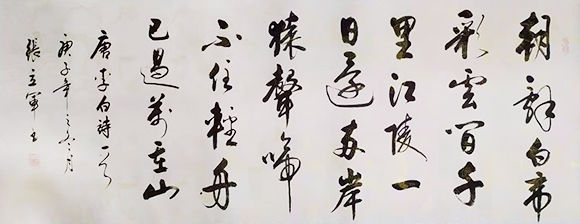 朝辞白帝
彩雲间千
里江陵一
日還两岸
猿聲啼
不住輕舟
已過萬重山
唐李白詩一首
庚子年之冬月
張立軍书